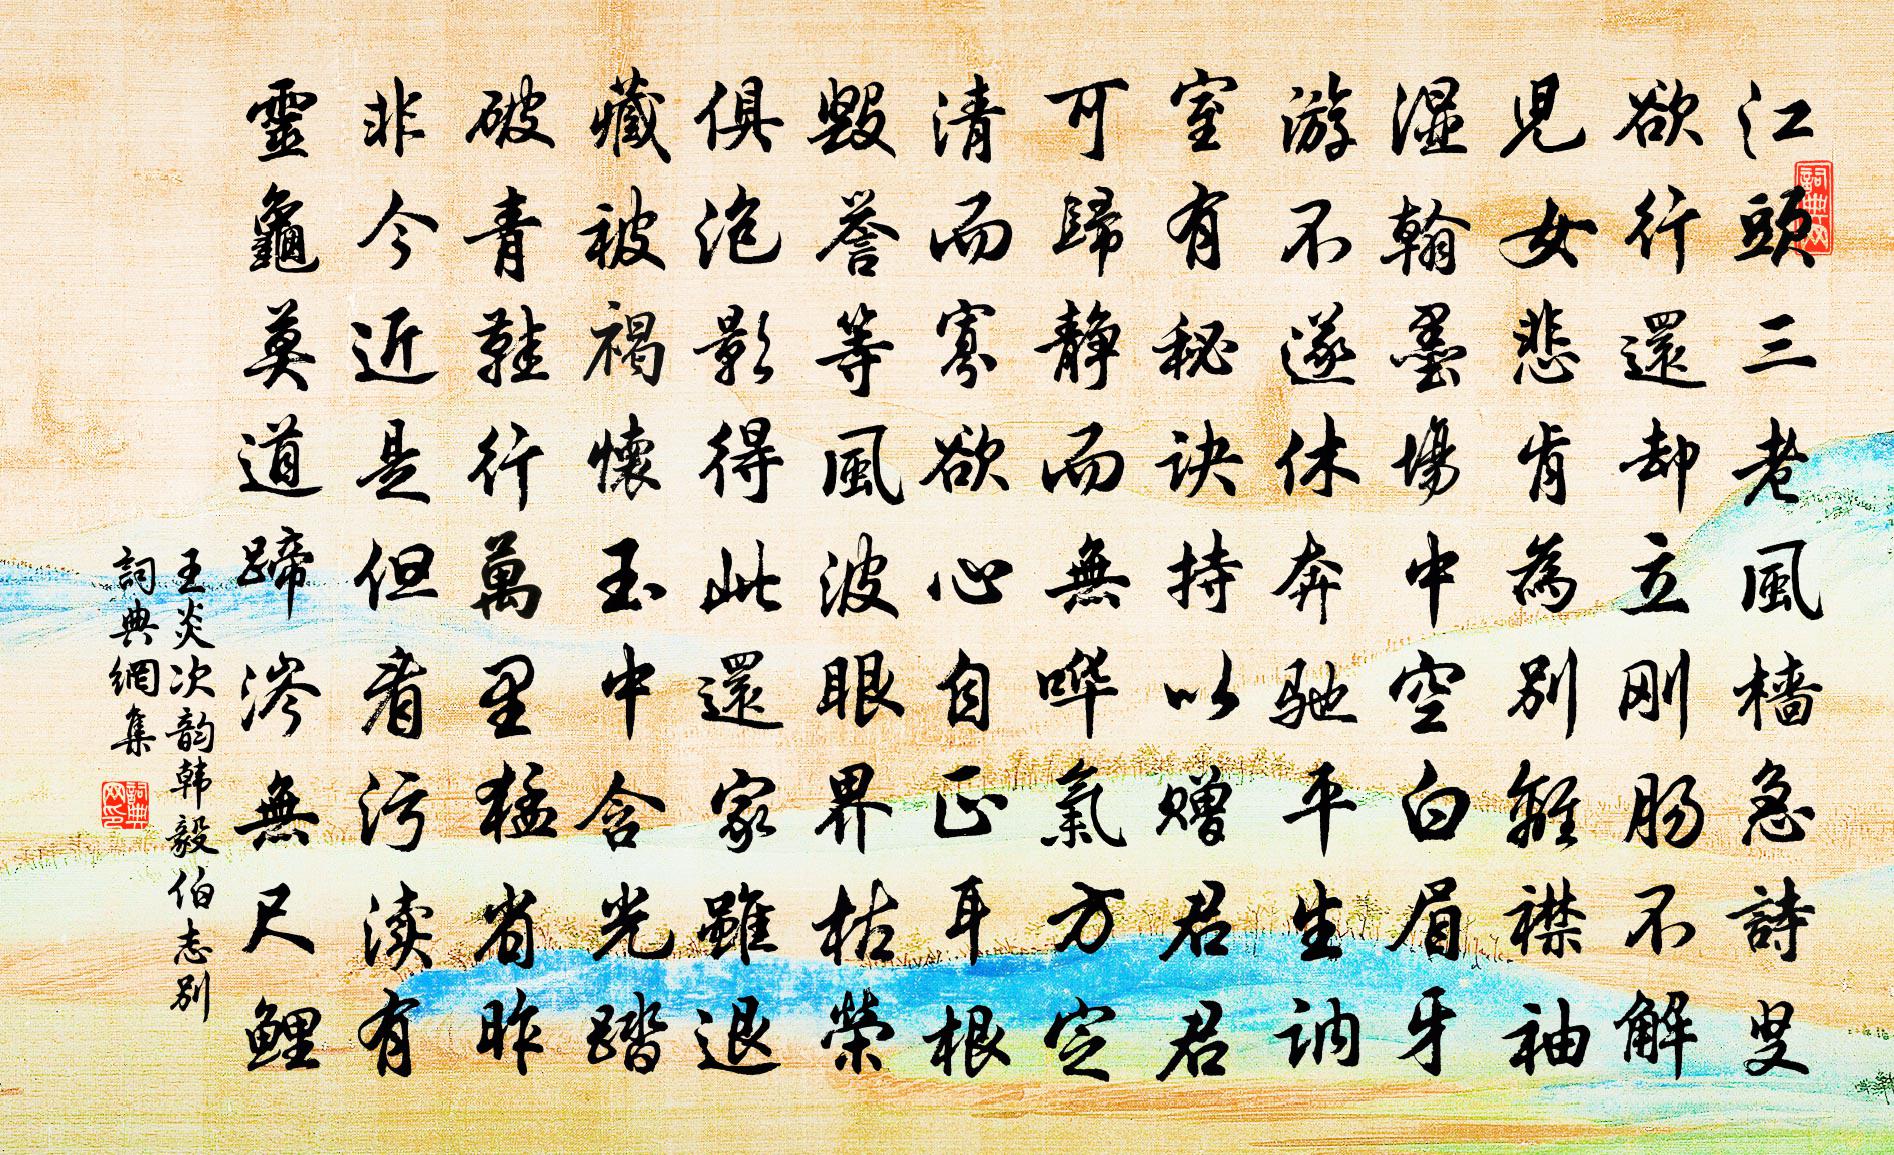 江頭三老風檣急詩叟
欲行還却立刚肠不解
児女悲肯為別離襟袖
湿翰墨場中空白眉牙
游不遂休奔驰平生讷
室有秘诀持以赠君君
可歸静而無哗氣方定
清而寡欲心自正耳根
毀誉等風波眼界枯榮
俱泡影得此還家雖退
藏被褐懷玉中含光踏
破青鞋行萬里猛省昨
非今近是但看污渎有
靈龜莫道蹄涔無尺鯉
王炎次韵韩毅伯志别
詞典網集
詞典